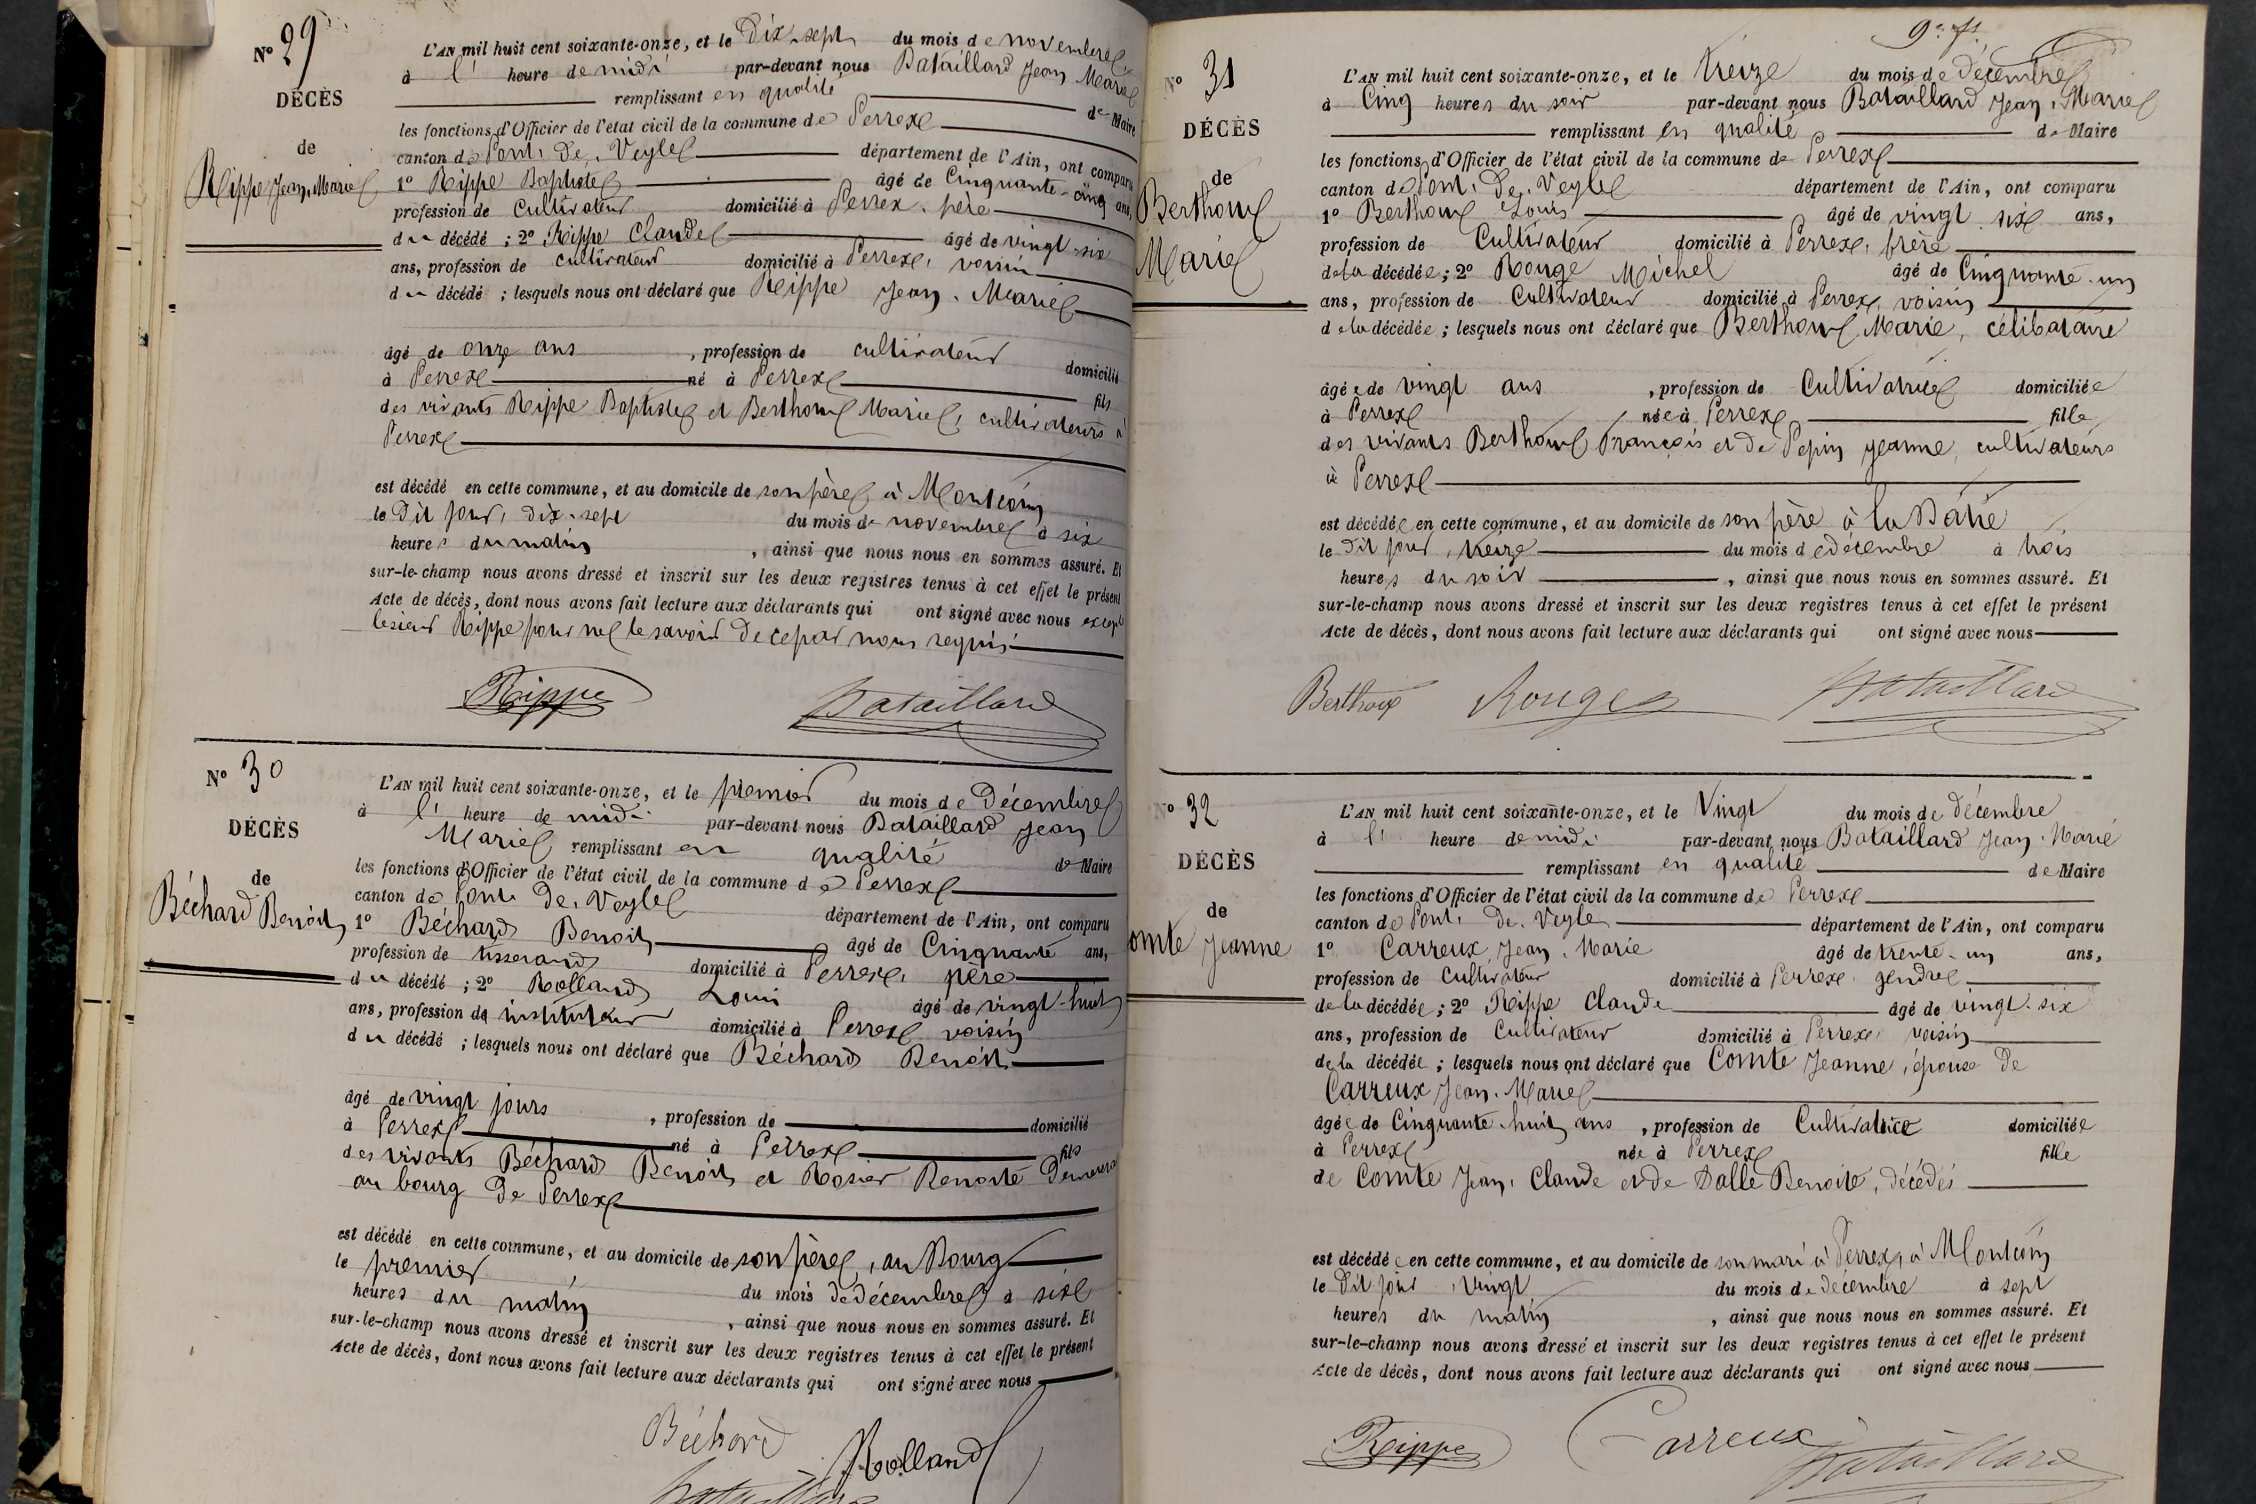 N° 29
DÉCÈS
de
Rippe Jean, Marie
L'AN mil huit cent soixante-onze, et le Dix-sept du mois de novembre
à l' heure de midi par-devant nous Bataillard Jean Marie
remplissant en qualité de Maire
les fonctions d'Officier de l'état civil de la commune de Perrex
canton de Pont. De. Veyle département de l'Ain, ont comparu
1° Rippe Baptiste âgé de Cinquante-cinq ans,
profession de Cultivateur domicilié à Perrex, père
du décédé ; 2° Rippe Claude âgé de vingt-six
ans, profession de cultivateur domicilié à Perrex, voisin
du décédé ; lesquels nous ont déclaré que Rippe Jean. Marie
âgé de onze ans , profession de cultivateur domicilié
à Perrex né à Perrex fils
des vivants Rippe Baptiste et Berthoux Marie, cultivateurs à
Perrex
est décédé en cette commune, et au domicile de son père à Montcoin
le Dit jour, dix-sept du mois de novembre à six
heures du matin , ainsi que nous nous en sommes assuré. Et
sur-le-champ nous avons dressé et inscrit sur les deux registres tenus à cet effet le présent
Acte de décès, dont nous avons fait lecture aux déclarants qui ont signé avec nous excepté
le sieur Rippe pour ne le savoir De ce par nous requis
Rippe Bataillard
N° 30
DÉCÈS
de
Béchard Benoit
L'AN mil huit cent soixante-onze, et le premier du mois de Décembre
à l' heure de midi par-devant nous Bataillard Jean
Marie remplissant en qualité de Maire
les fonctions d'Officier de l'état civil de la commune de Perrex
canton de Pont. De. Veyle département de l'Ain, ont comparu
1° Béchard Benoit âgé de Cinquante ans,
profession de tisserand domicilié à Perrex, père
du décédé ; 2° Rolland Louis âgé de vingt-huit
ans, profession de instituteur domicilié à Perrex voisin
du décédé ; lesquels nous ont déclaré que Béchard Benoit
âgé de vingt jours , profession de domicilié
à Perrex né à Perrex fils
des vivants Béchard Benoit et Rosier Benoite
au bourg De Perrex
est décédé en cette commune, et au domicile de son père, au Bourg
le premier du mois de décembre à six
heures du matin , ainsi que nous nous en sommes assuré. Et
sur-le-champ nous avons dressé et inscrit sur les deux registres tenus à cet effet le présent
Acte de décès, dont nous avons fait lecture aux déclarants qui ont signé avec nous
Béchard Rolland
Bataillard
N° 31
DÉCÈS
de
Berthoux
Marie
L'AN mil huit cent soixante-onze, et le treize du mois de Décembre
à Cinq heures du soir par-devant nous Bataillard Jean, Marie
remplissant en qualité de Maire
les fonctions d'Officier de l'état civil de la commune de Perrex
canton de Pont. De. Veyle département de l'Ain, ont comparu
1° Berthoux Louis âgé de vingt six ans,
profession de Cultivateur domicilié à Perrex, frère
de la décédée ; 2° Rouge Michel âgé de Cinquante-un
ans, profession de Cultivateur domicilié à Perrex, voisin
de la décédée ; lesquels nous ont déclaré que Berthoux Marie, célibataire
âgée de vingt ans , profession de Cultivatrice domiciliée
à Perrex née à Perrex fille
des vivants Berthoux François et de Pepin Jeanne, cultivateurs
à Perrex
est décédée en cette commune, et au domicile de son père à la Bâtie
le dit jour, treize du mois de décembre à trois
heures du soir , ainsi que nous nous en sommes assuré. Et
sur-le-champ nous avons dressé et inscrit sur les deux registres tenus à cet effet le présent
Acte de décès, dont nous avons fait lecture aux déclarants qui ont signé avec nous
Berthoux Rouge Bataillard
N° 32
DÉCÈS
de
omte Jeanne
L'AN mil huit cent soixante-onze, et le Vingt du mois de décembre
à l' heure de midi par-devant nous Bataillard Jean. Marie
remplissant en qualité de Maire
les fonctions d'Officier de l'état civil de la commune de Perrex
canton de Pont. De. Veyle département de l'Ain, ont comparu
1° Carreux Jean. Marie âgé de trente-un ans,
profession de Cultivateur domicilié à Perrex. gendre
de la décédée ; 2° Rippe Claude âgé de vingt-six
ans, profession de Cultivateur domicilié à Perrex, voisin
de la décédée ; lesquels nous ont déclaré que Comte Jeanne, épouse De
Carreux Jean. Marie
âgée de Cinquante-huit ans , profession de Cultivatrice domiciliée
à Perrex née à Perrex fille
de Comte Jean, Claude et de Dalle Benoite, décédés
est décédée en cette commune, et au domicile de son mari à Perrex, à Montcoin
le Dit jour, vingt du mois de décembre à sept
heures du matin , ainsi que nous nous en sommes assuré. Et
sur-le-champ nous avons dressé et inscrit sur les deux registres tenus à cet effet le présent
Acte de décès, dont nous avons fait lecture aux déclarants qui ont signé avec nous
Rippe Carreux Bataillard